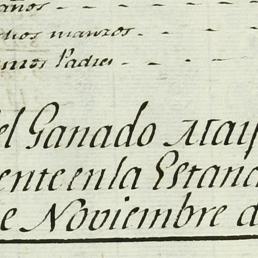 años
chos manzos
smos Padres
el Ganado May
ente en la Estanc
e Noviembre d